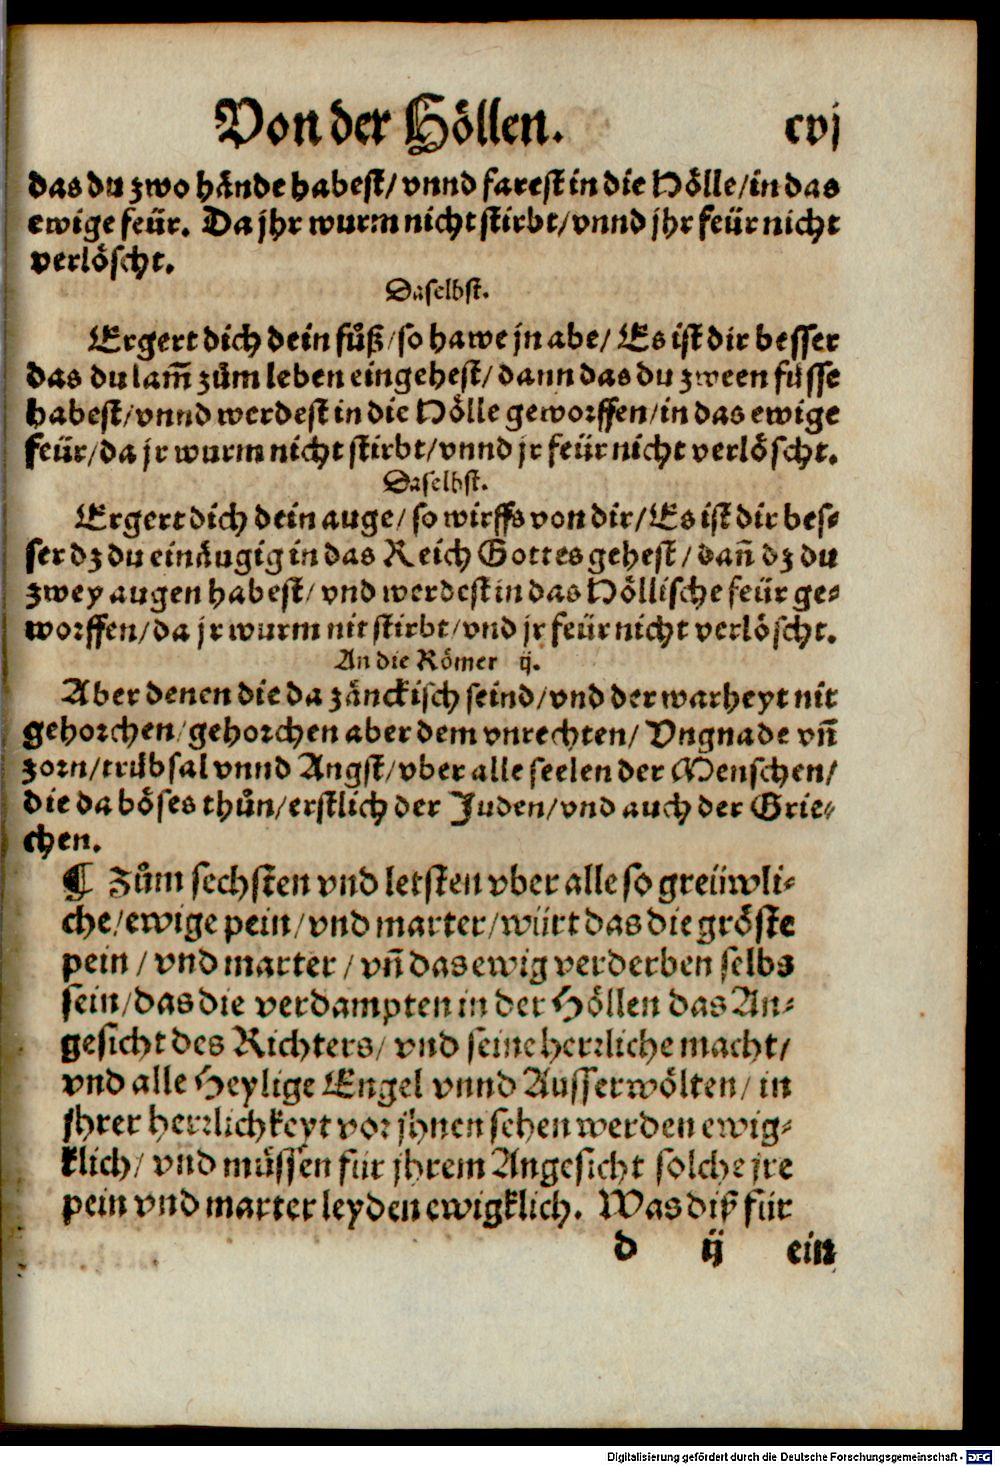 Von der Höllen. cvj
das du zwo hånde habest/ vnnd farest in die Hölle/in das
ewige feür. Da jhr wurm nicht stirbt/vnnd jhr feür nicht
verlöscht.
Daselbst.
Ergert dich dein fůß/so hawe jn abe/ Es ist dir besser
das du lam̃ zům leben eingehest/ dann das du zween füsse
habest/vnnd werdest in die Hölle geworffen/in das ewige
feür/da jr wurm nicht stirbt/vnnd jr feür nicht verlöscht.
Daselbst.
Ergert dich dein auge/ so wirffs von dir/Es ist dir bes-
ser dz du einäugig in das Reich Gottes gehest/ dañ dz du
zwey augen habest/ vnd werdest in das Höllische feür ge-
worffen/da jr wurm nit stirbt/vnd jr feür nicht verlöscht.
An die Römer ij.
Aber denen die da zänckisch seind/vnd der warheyt nit
gehorchen/gehorchen aber dem vnrechten/ Vngnade vñ
zorn/trübsal vnnd Angst/vber alle seelen der Menschen/
die da böses thůn/erstlich der Juden/vnd auch der Grie-
chen.
¶ Zům sechsten vnd letsten vber alle so greüwli-
che/ewige pein/vnd marter/würt das die gröste
pein/vnd marter/vñ das ewig verderben selbs
sein/das die verdampten in der Höllen das An-
gesicht des Richters/ vnd seine herrliche macht/
vnd alle Heylige Engel vnnd Ausserwölten/ in
jhrer herrlichkeyt vor jhnen sehen werden ewig-
klich/ vnd müssen für jhrem Angesicht solche jre
pein vnd marter leyden ewigklich. Was diß für
d ij ein
Digitalisierung gefördert durch die Deutsche Forschungsgemeinschaft - DFG